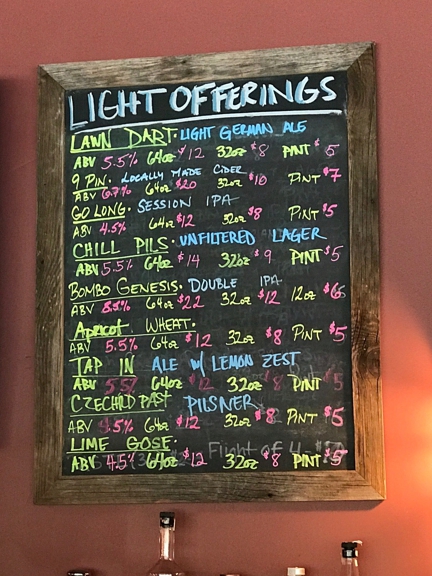 LIGHT OFFERINGS
LAWN DART. LIGHT GERMAN ALE
ABV 5.5% 64oz $12 32oz $8 PINT $5
9 PIN. LOCALLY MADE CIDER
ABV 6.7% 64oz $20 32oz $10 PINT $7
GO LONG. SESSION IPA
ABV 4.5% 64oz $12 32oz $8 PINT $5
CHILL PILS. UNFILTERED LAGER
ABV 5.5% 64oz $14 32oz $9 PINT $5
BOMBO GENESIS. DOUBLE IPA
ABV 8.5% 64oz $22 32oz $12 12oz $6
Apricot WHEAT.
ABV 5.5% 64oz $12 32oz $8 PINT $5
TAP IN ALE W/ LEMON ZEST
ABV 5.5% 64oz $12 32oz $8 PINT $5
CZECHILD PAST PILSNER
ABV 4.5% 64oz $12 32oz $8 PINT $5
LIME GOSE. Flight of 4
ABV 4.5% 64oz $12 32oz $8 PINT $5